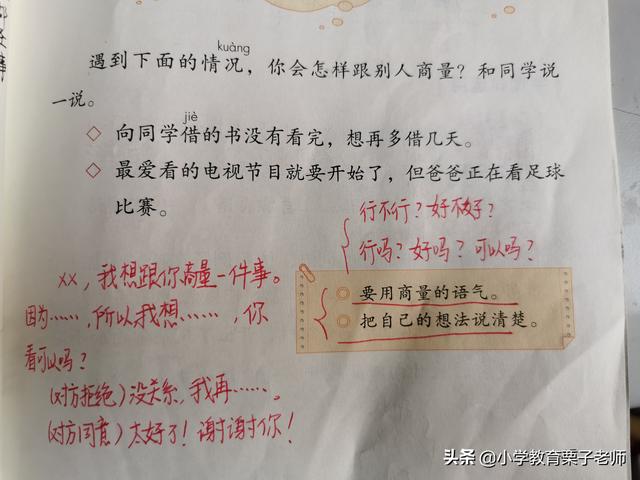 kuàng
遇到下面的情况，你会怎样跟别人商量？和同学说
一说。
jiè
◇ 向同学借的书没有看完，想再多借几天。
◇ 最爱看的电视节目就要开始了，但爸爸正在看足球
比赛。
行不行？好不好？
行吗？好吗？可以吗？
xx，我想跟你商量一件事。
因为……，所以我想……，你
看可以吗？
（对方拒绝）没关系，我再……。
（对方同意）太好了！谢谢你！
◎ 要用商量的语气。
◎ 把自己的想法说清楚。
头条 @小学教育栗子老师